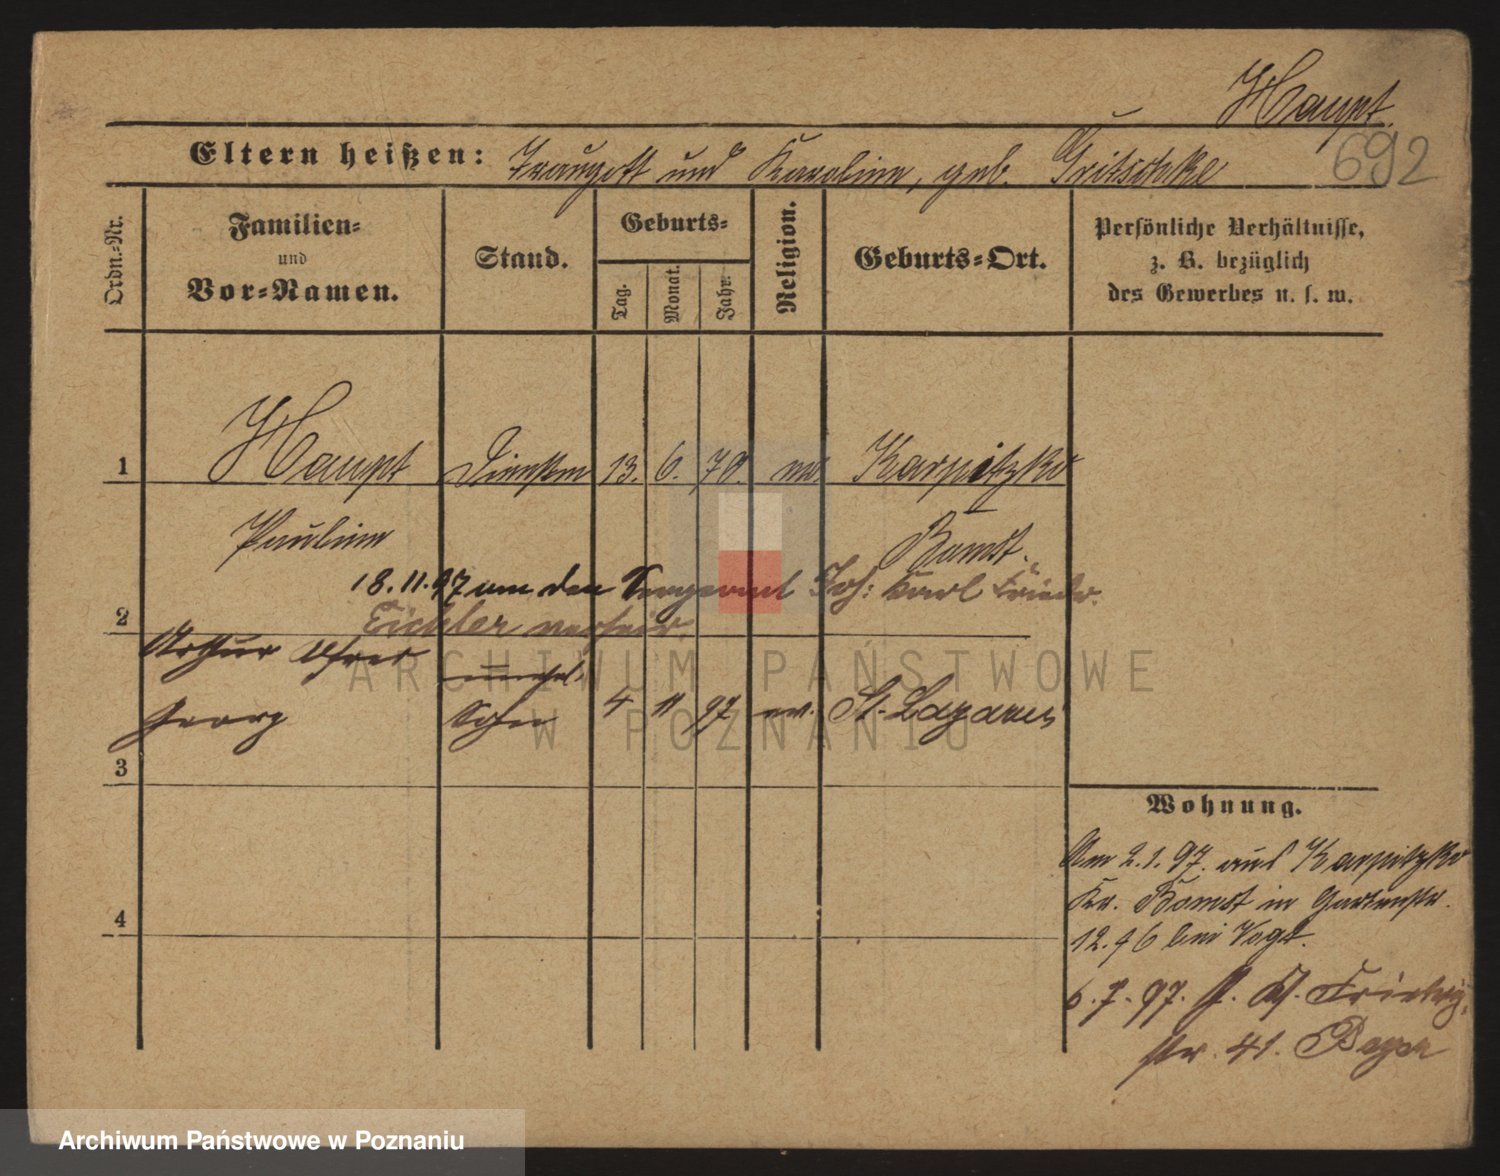 Haupt.
692
Eltern heißen: Traugott und Karoline, geb. Gritschke
Ordn.-Nr.
Familien-
und
Vor-Namen.
Stand.
Geburts-
Tag.
Monat.
Jahr.
Religion.
Geburts-Ort.
Persönliche Verhältnisse,
z. B. bezüglich
des Gewerbes u. s. w.
1 Haupt Dienstm 13. 6. 70. ev. Karpitzko
Pauline Bomst.
18.11.97 an den Sergeant Joh: Karl Friedr.
2 Eichler verheir.
Arthur Alfred unehel.
Georg Sohn 4 11 97 ev. St. Lazarus
3
4
Wohnung.
Am 2.1.97. aus Karpitzko
Kr. Bomst in Gartenstr.
12. 46 bei Vogt.
6.7.97.
str. 41. Beyer
ARCHIWUM PAŃSTWOWE
W POZNANIU
Archiwum Państwowe w Poznaniu